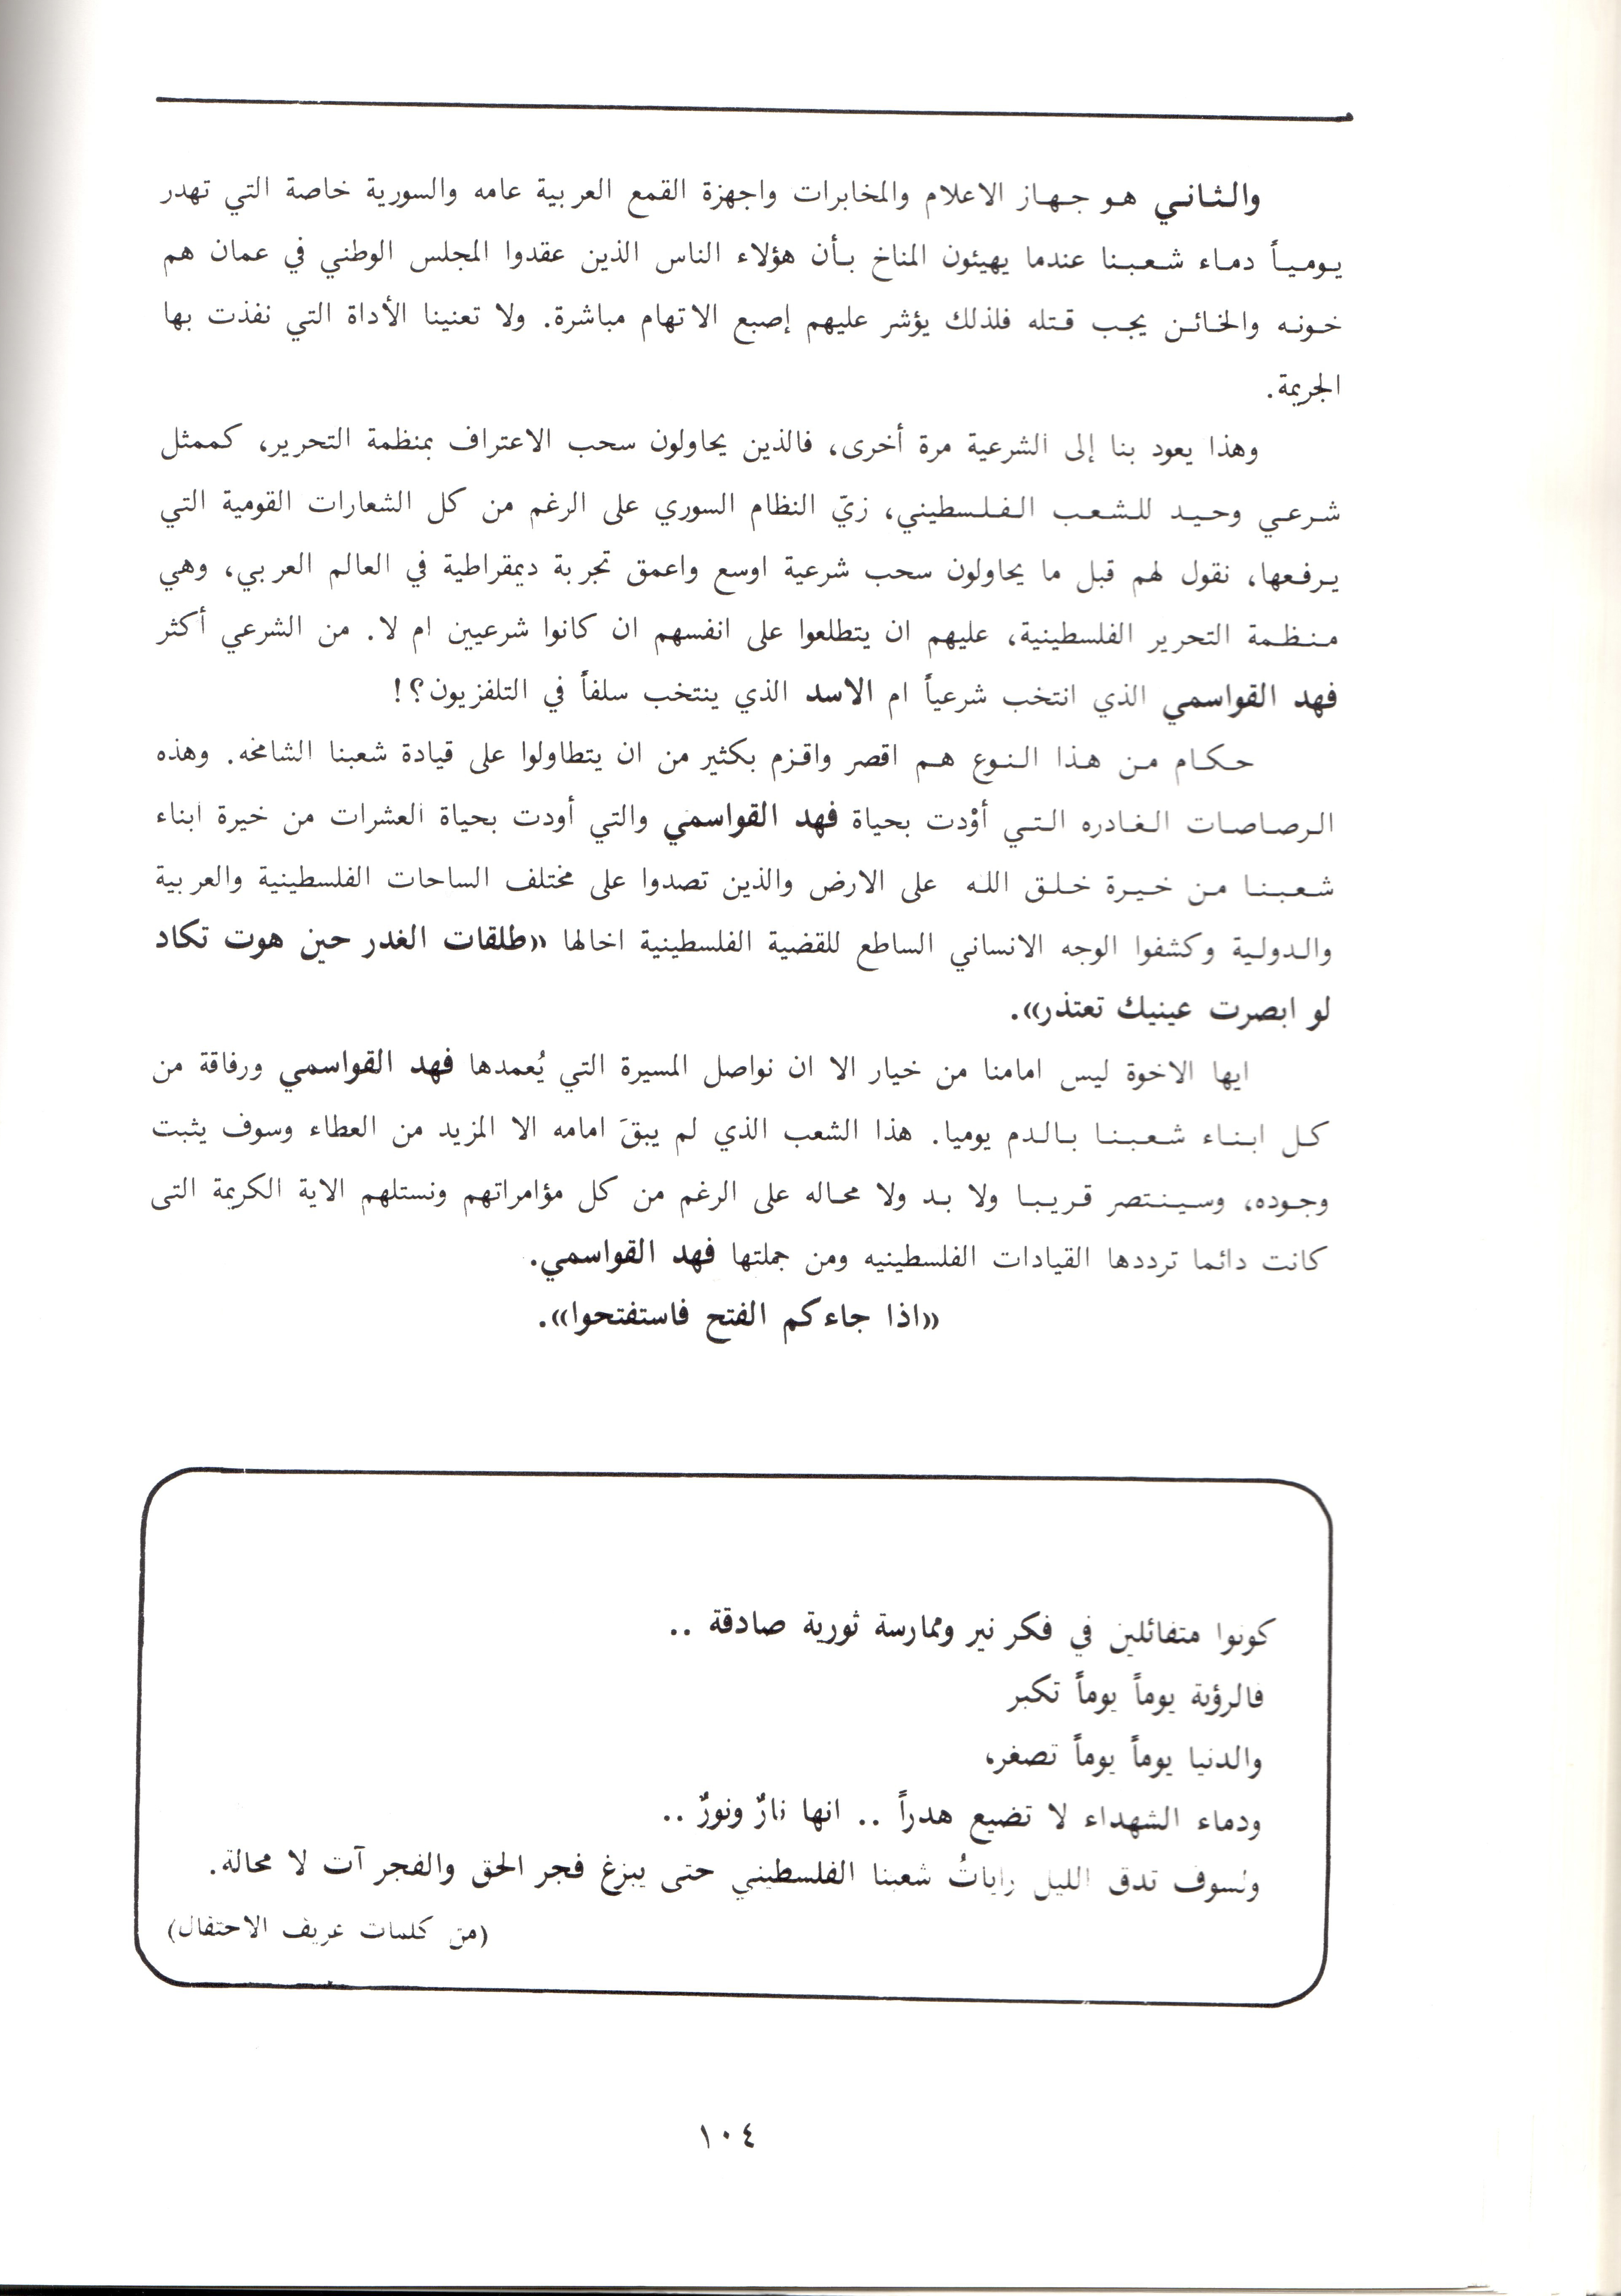 والثاني هو جهاز الاعلام والمخابرات واجهزة القمع العربية عامه والسورية خاصة التي تهدر
يومياً دماء شعبنا عندما يهيئون المناخ بأن هؤلاء الناس الذين عقدوا المجلس الوطني في عمان هم
خونه والخائن يجب قتله فلذلك يؤشر عليهم إصبع الاتهام مباشرة. ولا تعنينا الأداة التي نفذت بها
الجريمة.
وهذا يعود بنا إلى الشرعية مرة أخرى، فالذين يحاولون سحب الاعتراف بمنظمة التحرير، كممثل
شرعي وحيد للشعب الفلسطيني، زيّ النظام السوري على الرغم من كل الشعارات القومية التي
يرفعها، نقول لهم قبل ما يحاولون سحب شرعية اوسع واعمق تجربة ديمقراطية في العالم العربي، وهي
منظمة التحرير الفلسطينية، عليهم ان يتطلعوا على انفسهم ان كانوا شرعيين ام لا. من الشرعي أكثر
فهد القواسمي الذي انتخب شرعياً ام الاسد الذي ينتخب سلفاً في التلفزيون؟!
حكام من هذا النوع هم اقصر واقزم بكثير من ان يتطاولوا على قيادة شعبنا الشامخه. وهذه
الرصاصات الغادره التي أوْدت بحياة فهد القواسمي والتي أودت بحياة العشرات من خيرة ابناء
شعبنا من خيرة خلق الله على الارض والذين تصدوا على مختلف الساحات الفلسطينية والعربية
والدولية وكشفوا الوجه الانساني الساطع للقضية الفلسطينية اخالها «طلقات الغدر حين هوت تكاد
لو ابصرت عينيك تعتذر».
ايها الاخوة ليس امامنا من خيار الا ان نواصل المسيرة التي يُعمدها فهد القواسمي ورفاقة من
كل ابناء شعبنا بالدم يوميا. هذا الشعب الذي لم يبقَ امامه الا المزيد من العطاء وسوف يثبت
وجوده، وسينتصر قريبا ولا بد ولا محاله على الرغم من كل مؤامراتهم ونستلهم الاية الكريمة التى
كانت دائما ترددها القيادات الفلسطينيه ومن جملتها فهد القواسمي.
«اذا جاءكم الفتح فاستفتحوا».
كونوا متفائلين في فكر نير وممارسة ثورية صادقة ..
فالرؤية يوماً يوماً تكبر
والدنيا يوماً يوماً تصغر،
ودماء الشهداء لا تضيع هدراً .. انها نارٌ ونورٌ ..
ولسوف تدق الليل راياتُ شعبنا الفلسطيني حتى يبزغ فجر الحق والفجر آت لا محالة.
(من كلمات عريف الاحتفال)
١٠٤